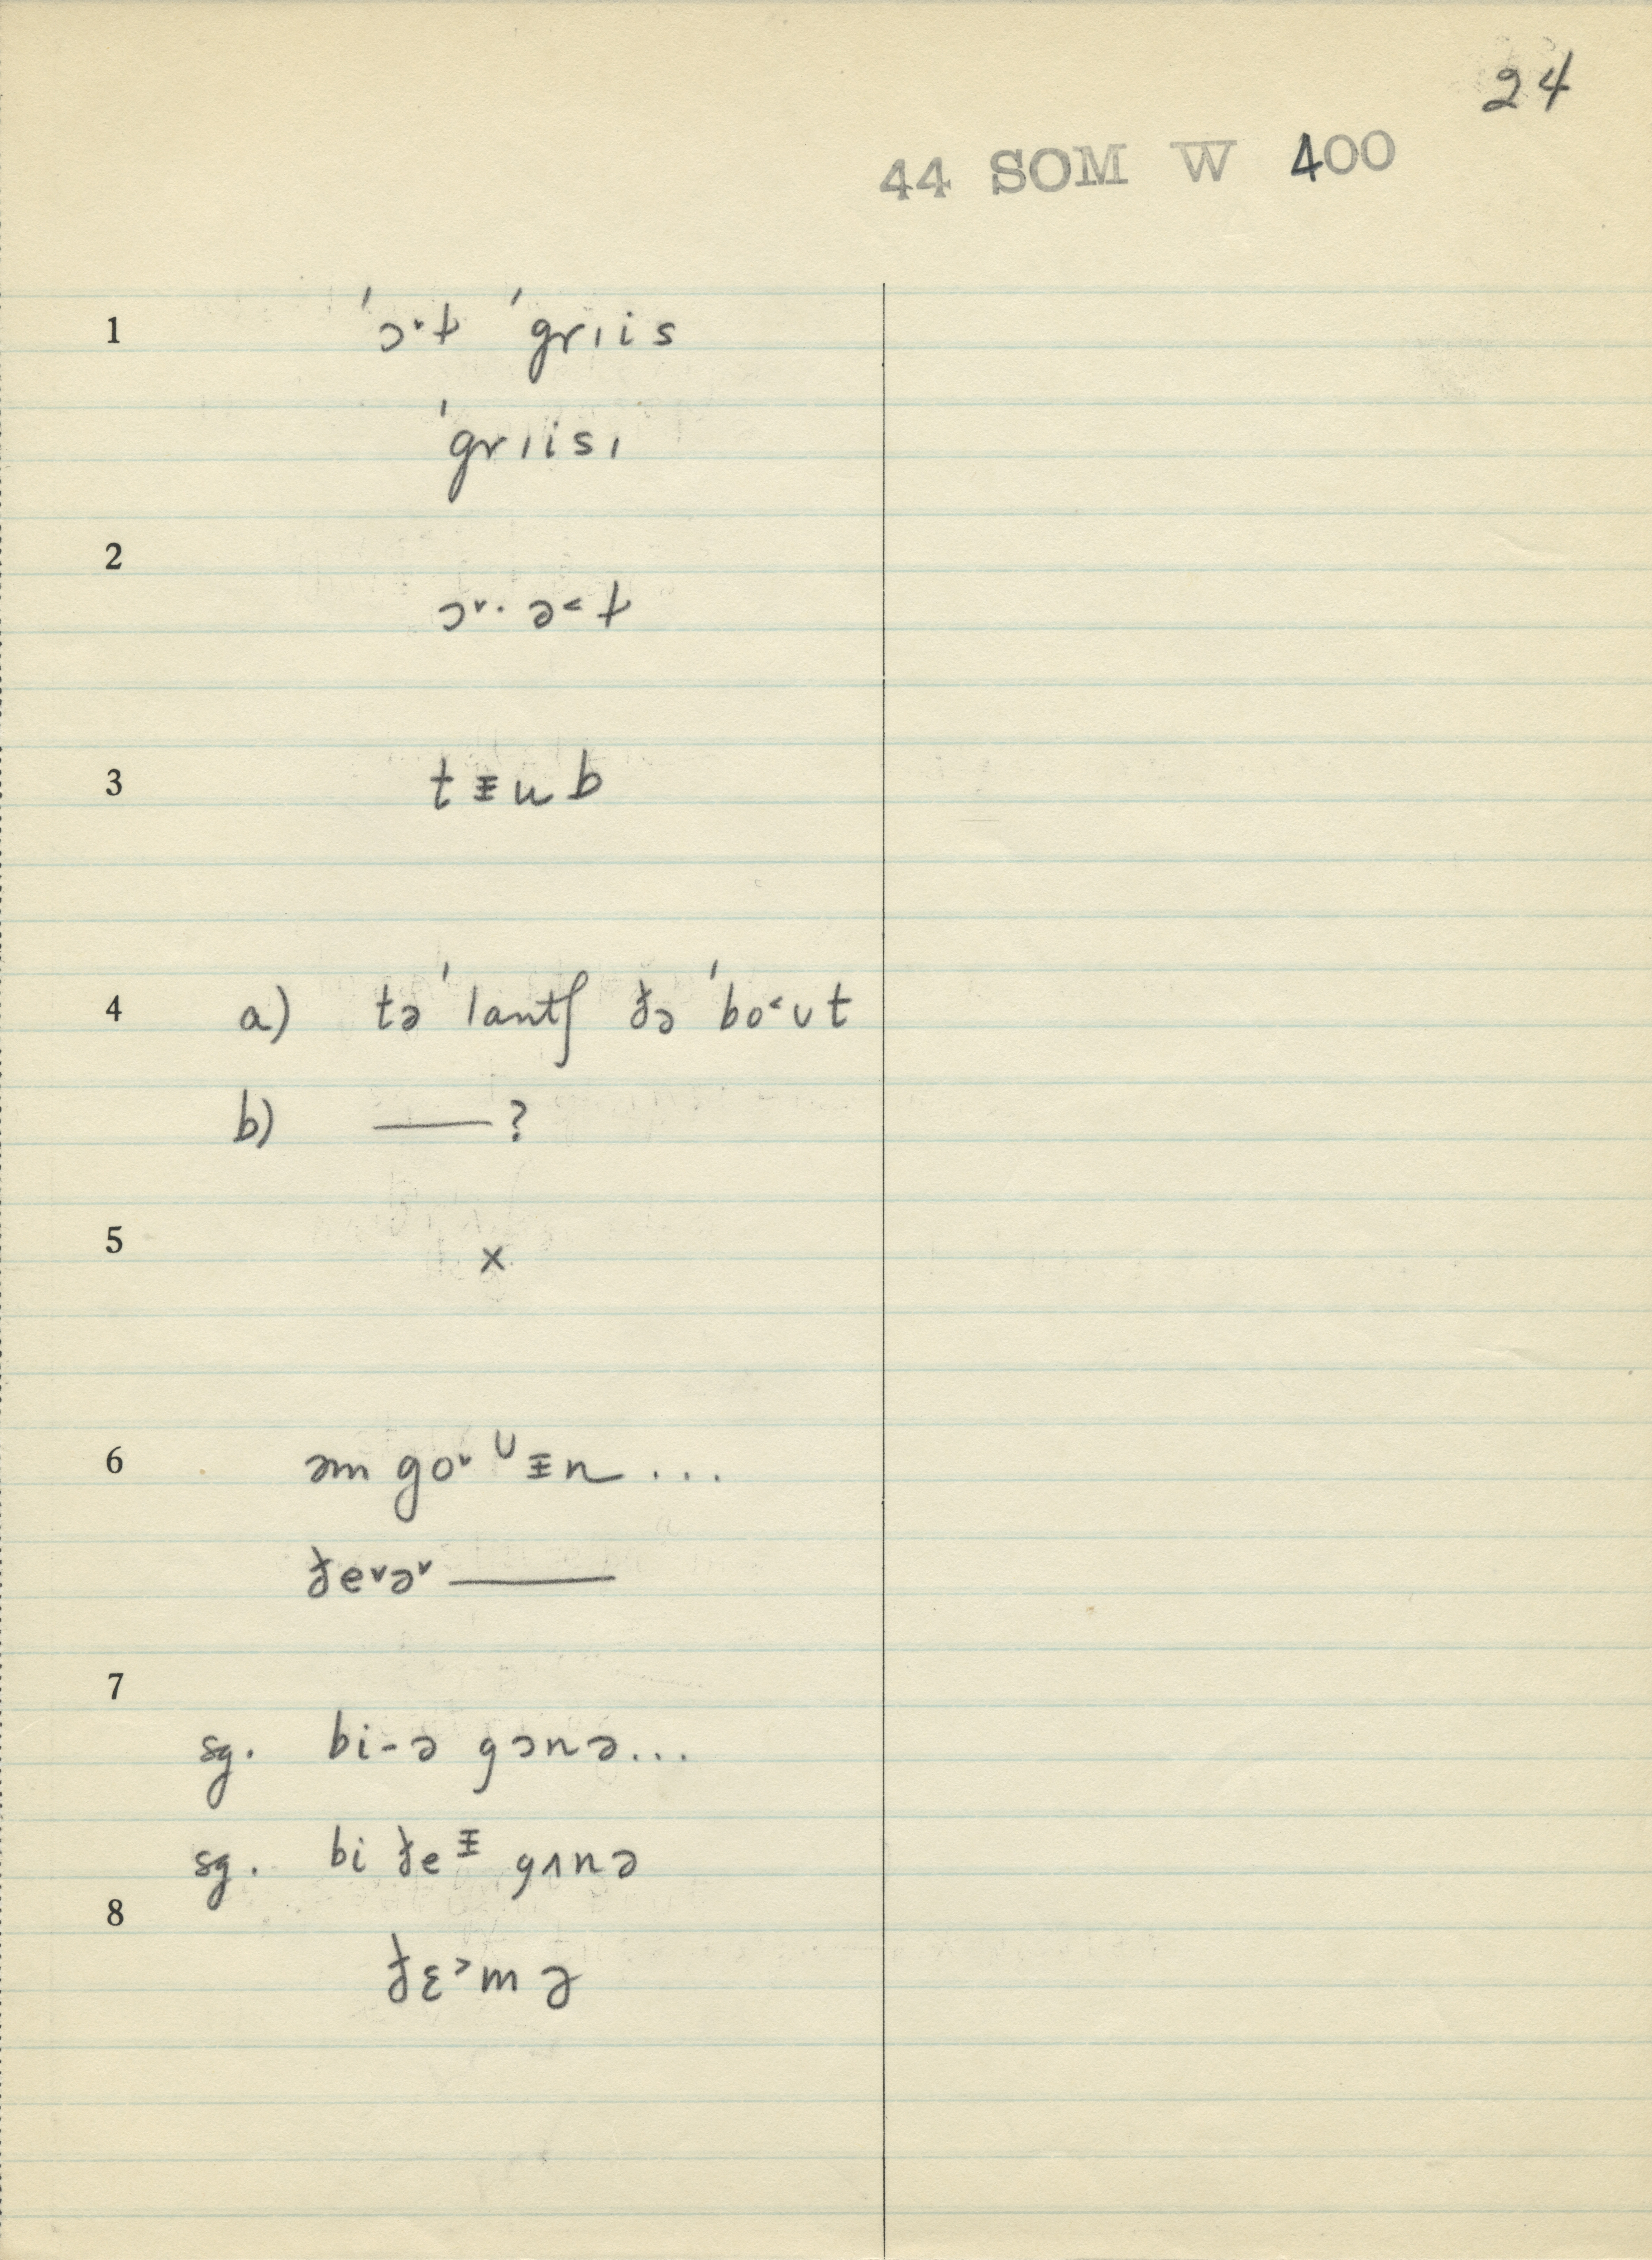 24
44 SOM W 400
1 ˈɔ˅t̬ ˈgrɪis
ˈgrɪisɪ
2 ɔ˅· ə˂ t̬
3 t ᵻ u b
4 a) tə ˈlantʃ ðə ˈbo˂ʊt
b) —— ?
5 x
6 əm go˅ ᶸᵻn ...
ðe˅ə˅ ——
7
sg. bi-ə gɔnə...
sg. bi ðeᵻ gʌnə
8
ðɛ˃mə